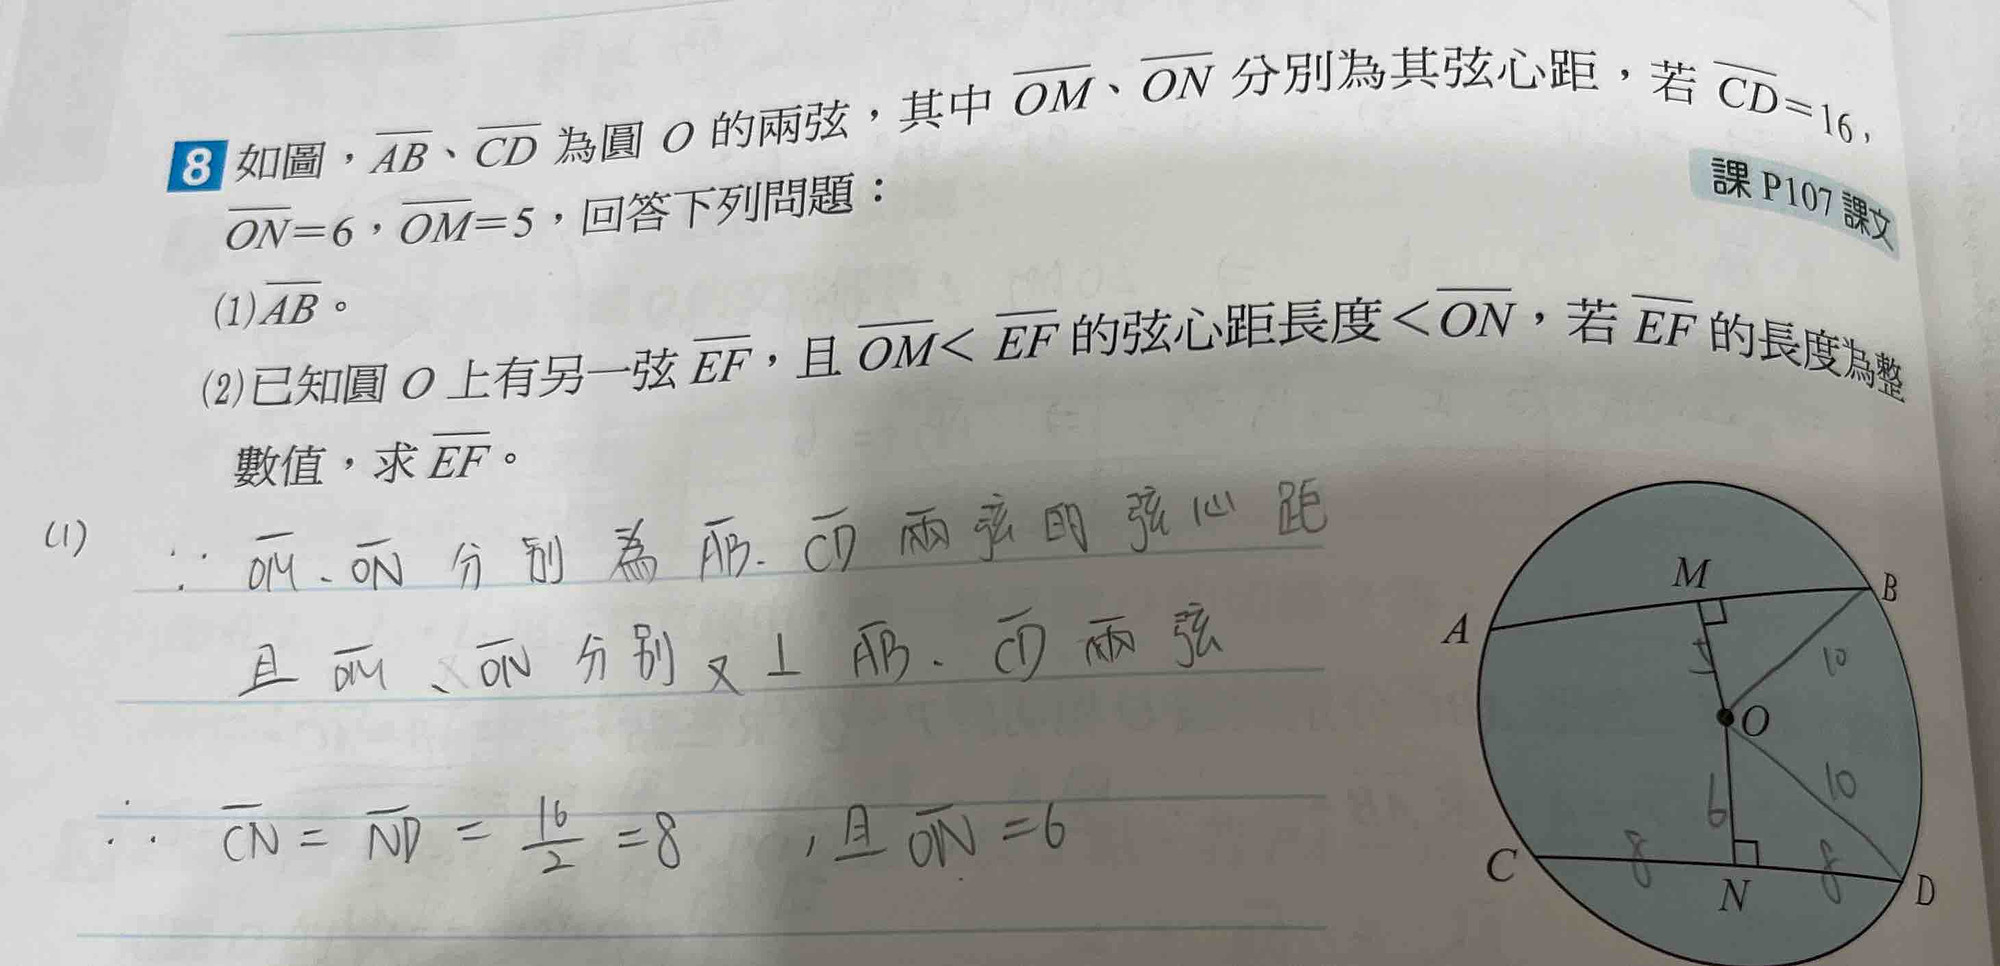 8 如圖，AB、CD 為圓 O 的兩弦，其中 OM、ON 分別為其弦心距，若 CD=16，
ON=6，OM=5，回答下列問題：
課 P107 課文
(1)AB。
(2)已知圓 O 上有另一弦 EF，且 OM< EF 的弦心距長度<ON，若 EF 的長度為整
數值，求 EF。
(1) ∵ OM、ON 分別為 AB、CD 兩弦的弦心距
且 OM、ON 分別又⊥ AB、CD 兩弦
∴ CN = ND = 16/2 = 8 ，且 ON = 6
M
B
A
5
10
O
6
10
C
8
N
8
D